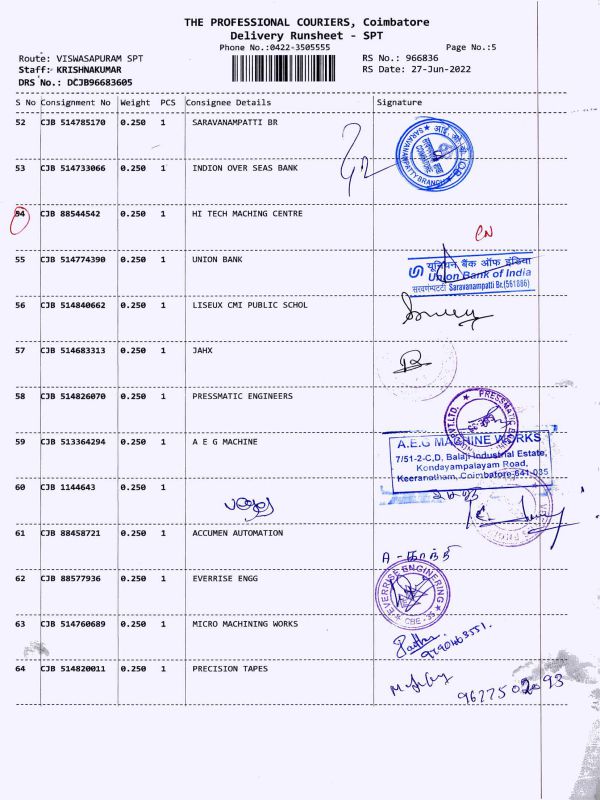 THE PROFESSIONAL COURIERS, Coimbatore
Delivery Runsheet - SPT
Phone No.:0422-3505555
Page No.:5
Route: VISWASAPURAM SPT
RS No.: 966836
Staff: KRISHNAKUMAR
RS Date: 27-Jun-2022
DRS No.: DCJB96683605
S No Consignment No Weight PCS Consignee Details Signature
52 CJB 514785170 0.250 1 SARAVANAMPATTI BR
53 CJB 514733066 0.250 1 INDION OVER SEAS BANK
54 CJB 88544542 0.250 1 HI TECH MACHING CENTRE
55 CJB 514774390 0.250 1 UNION BANK
यूनियन बैंक ऑफ इंडिया
Union Bank of India
Saravanampatti Br.(561886)
56 CJB 514840662 0.250 1 LISEUX CMI PUBLIC SCHOL
57 CJB 514683313 0.250 1 JAHX
58 CJB 514826070 0.250 1 PRESSMATIC ENGINEERS
59 CJB 513364294 0.250 1 A E G MACHINE
A.E.G MACHINE WORKS
7/51-2-C,D, Balaji Industrial Estate,
Kondayampalayam Road,
Keeranatham, Coimbatore-641 035
60 CJB 1144643 0.250 1
61 CJB 88458721 0.250 1 ACCUMEN AUTOMATION
62 CJB 88577936 0.250 1 EVERRISE ENGG
EVERRISE ENGINEERING
CBE - 35
63 CJB 514760689 0.250 1 MICRO MACHINING WORKS
64 CJB 514820011 0.250 1 PRECISION TAPES
9677502093